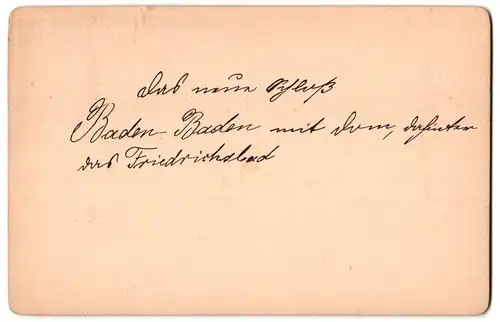 das neue Schloß
Baden-Baden mit dom, dahinter
das Friedrichsbad